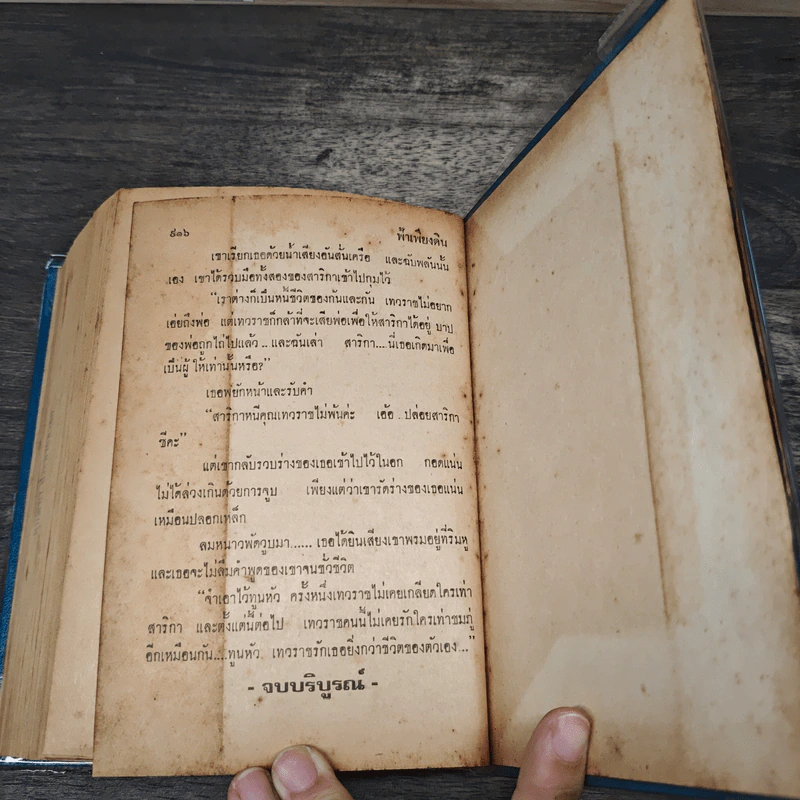 ๙๑๖ ฟ้าเพียงดิน
เขาเรียกเธอด้วยน้ำเสียงอันสั่นเครือ และฉับพลันนั้น
เอง เขาได้รวบมือทั้งสองของสาริกาเข้าไปกุมไว้
“เราต่างก็เป็นหนี้ชีวิตของกันและกัน เทวราชไม่อยาก
เอ่ยถึงพ่อ แต่เทวราชก็กล้าที่จะเสียพ่อเพื่อให้สาริกาได้อยู่ บาป
ของพ่อถูกไถ่ไปแล้ว .. และฉันเล่า สาริกา....นี่เธอเกิดมาเพื่อ
เป็นผู้ ให้เท่านั้นหรือ?”
เธอพยักหน้าและรับคำ
“สาริกาหนีคุณเทวราชไม่พ้นค่ะ เอ้อ ..ปล่อยสาริกา
ซีคะ”
แต่เขากลับรวบร่างของเธอเข้าไปไว้ในอก กอดแน่น
ไม่ได้ล่วงเกินด้วยการจูบ เพียงแต่ว่าเขารัดร่างของเธอแน่น
เหมือนปลอกเหล็ก
ลมหนาวพัดวูบมา...... เธอได้ยินเสียงเขาพรมอยู่ที่ริมหู
และเธอจะไม่ลืมคำพูดของเขาจนชั่วชีวิต
“จำเอาไว้ทูนหัว ครั้งหนึ่งเทวราชไม่เคยเกลียดใครเท่า
สาริกา และตั้งแต่นี้ต่อไป เทวราชคนนี้ไม่เคยรักใครเท่าชมภู่
อีกเหมือนกัน....ทูนหัว เทวราชรักเธอยิ่งกว่าชีวิตของตัวเอง...”
- จบบริบูรณ์ -